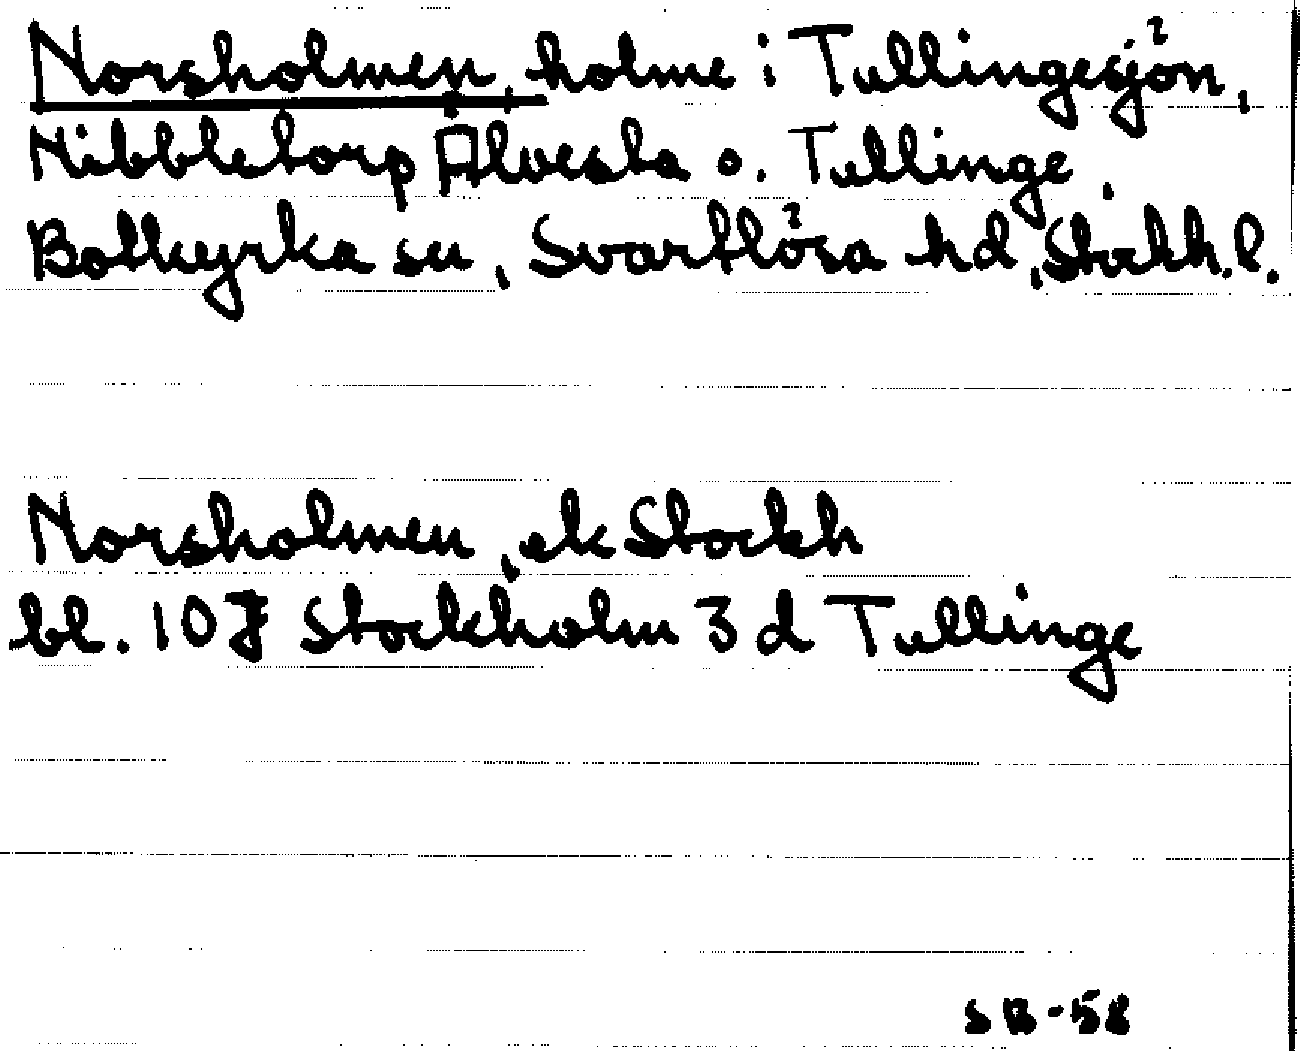 Norsholmen, holme i Tullingesjön,
Nibbletorp Älvesta o. Tullinge,
Botkyrka sn, Svartlösa hd, Stockh. l.
Norsholmen, ek Stockh
bl. 10 J Stockholm 3 d Tullinge
SB-58